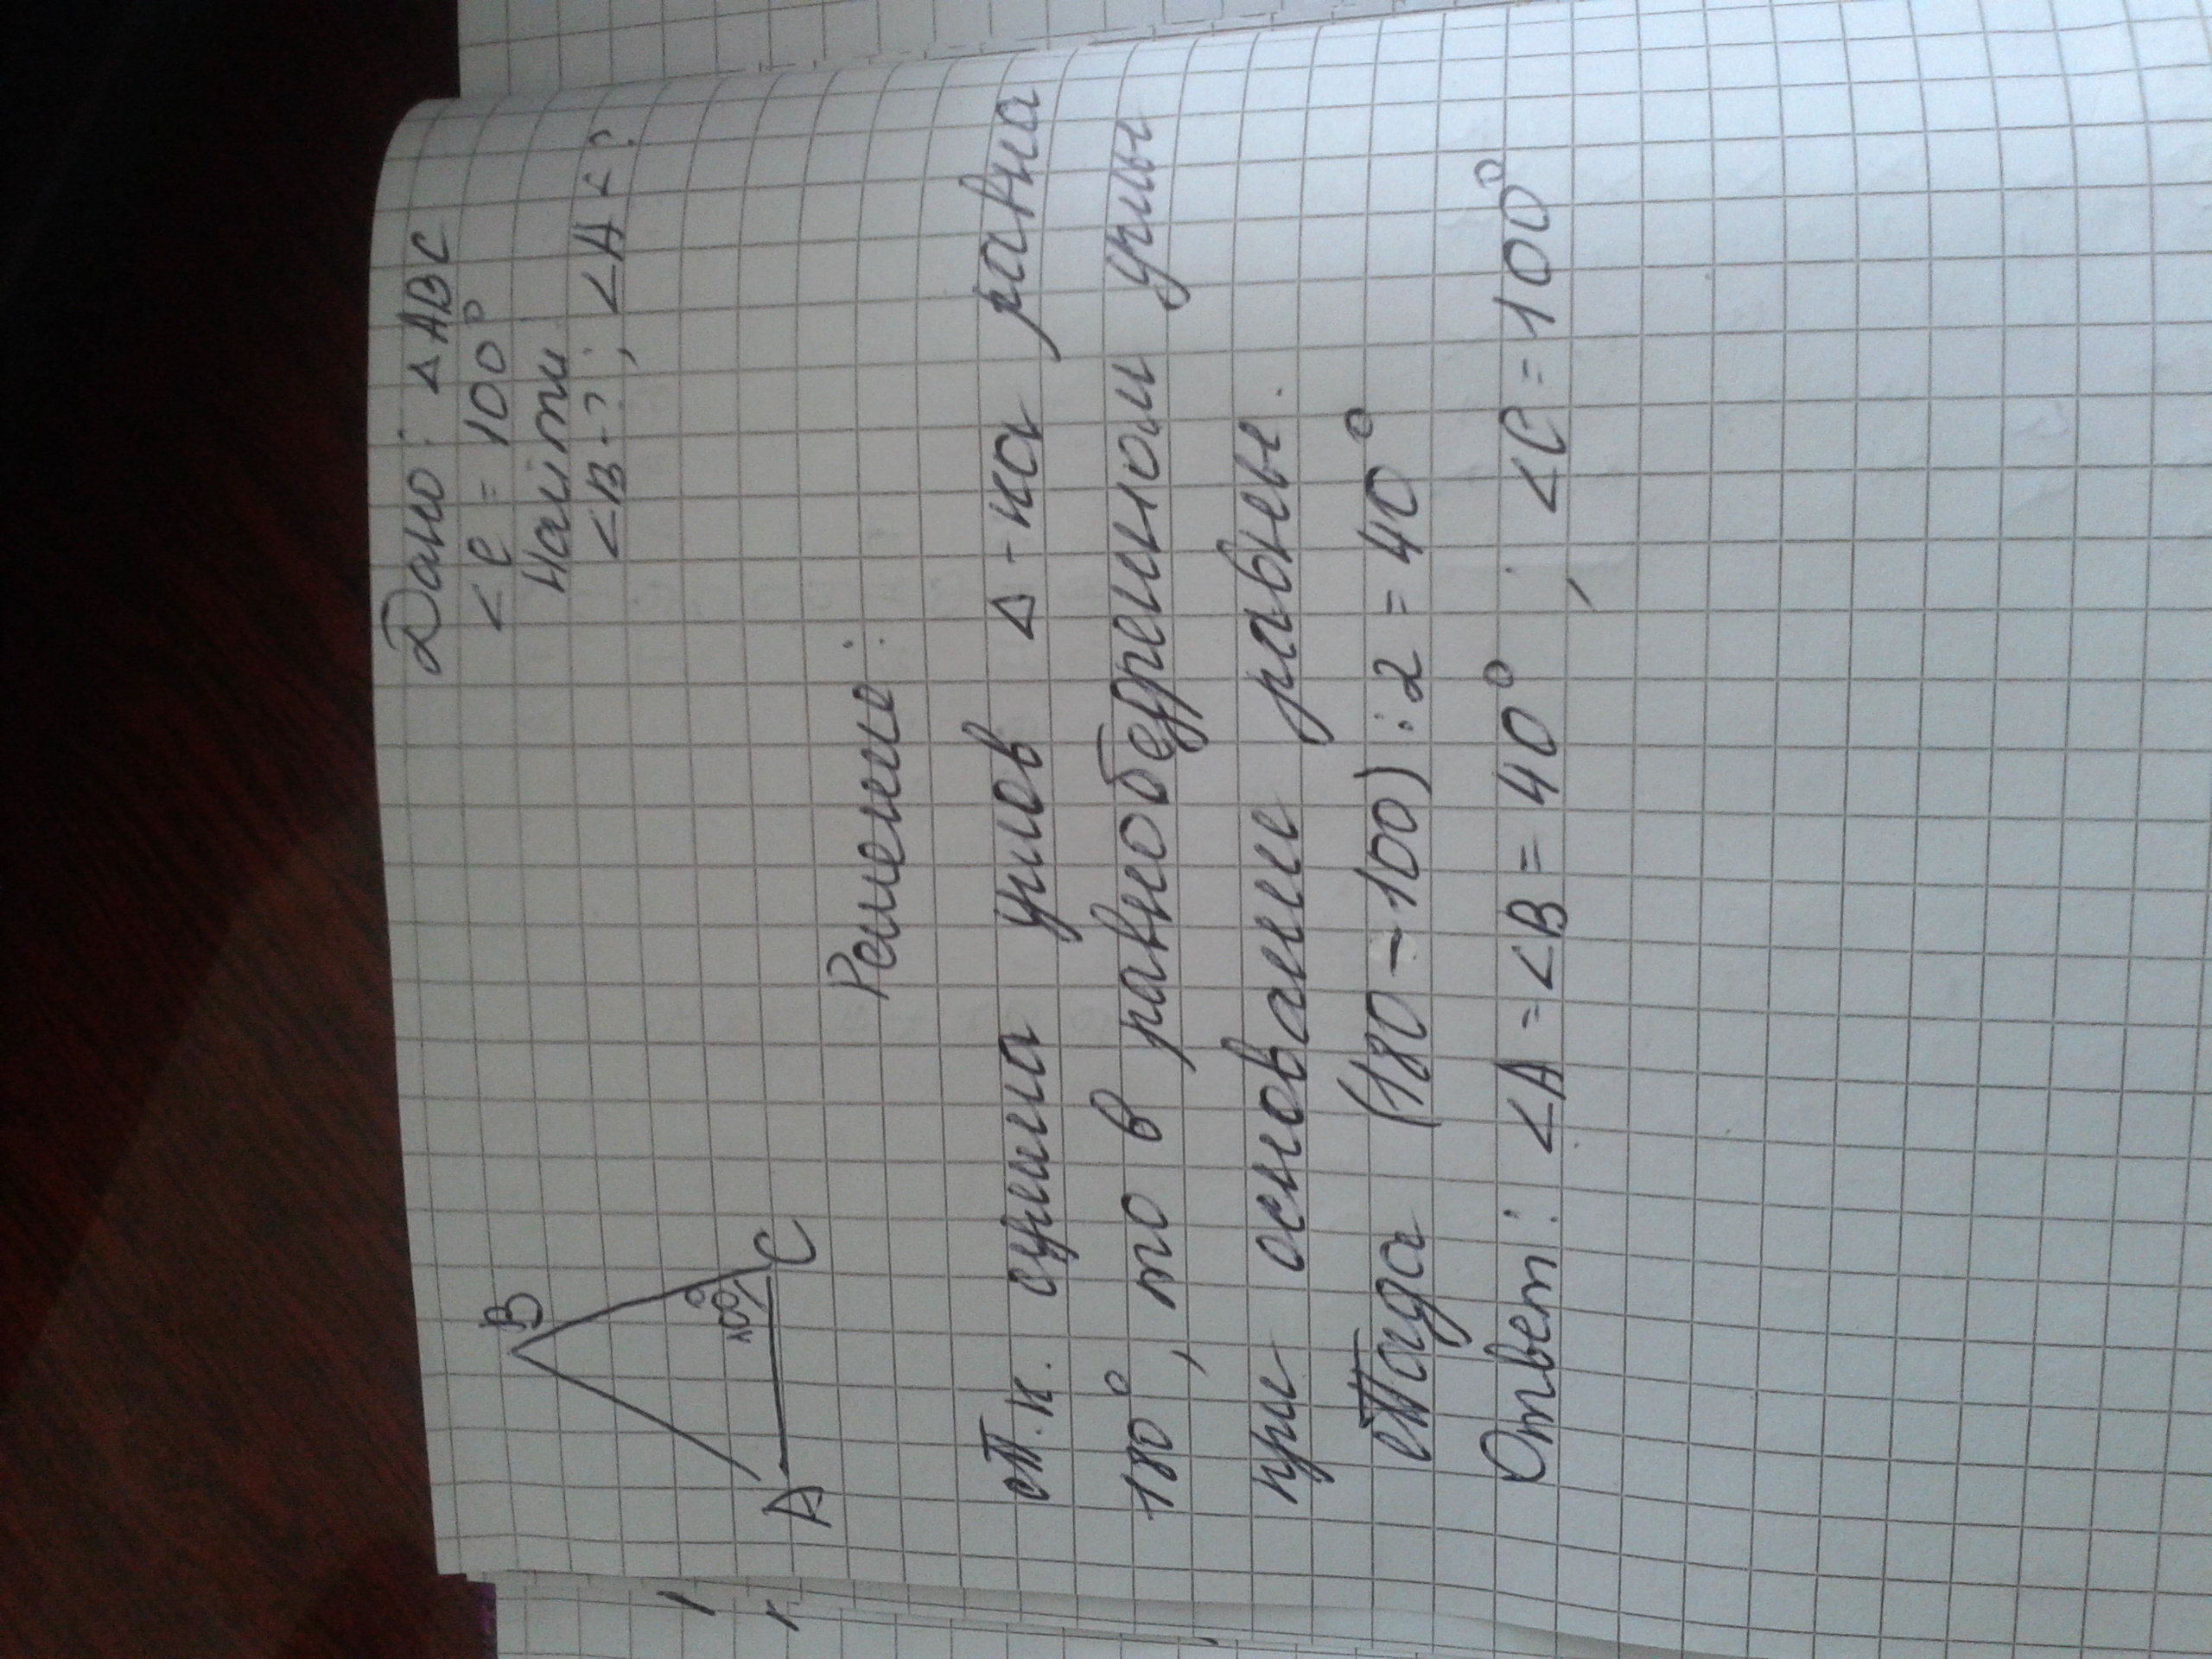 Дано: △ABC
<C = 100°
Найти
<B-?; <A-?
B
100°
A
C
Решение:
Т.к. сумма углов △-ка равна
180°, то в равнобедренном углы
при основание равны.
Тогда (180-100):2=40°
Ответ: <A=<B=40°; <C=100°